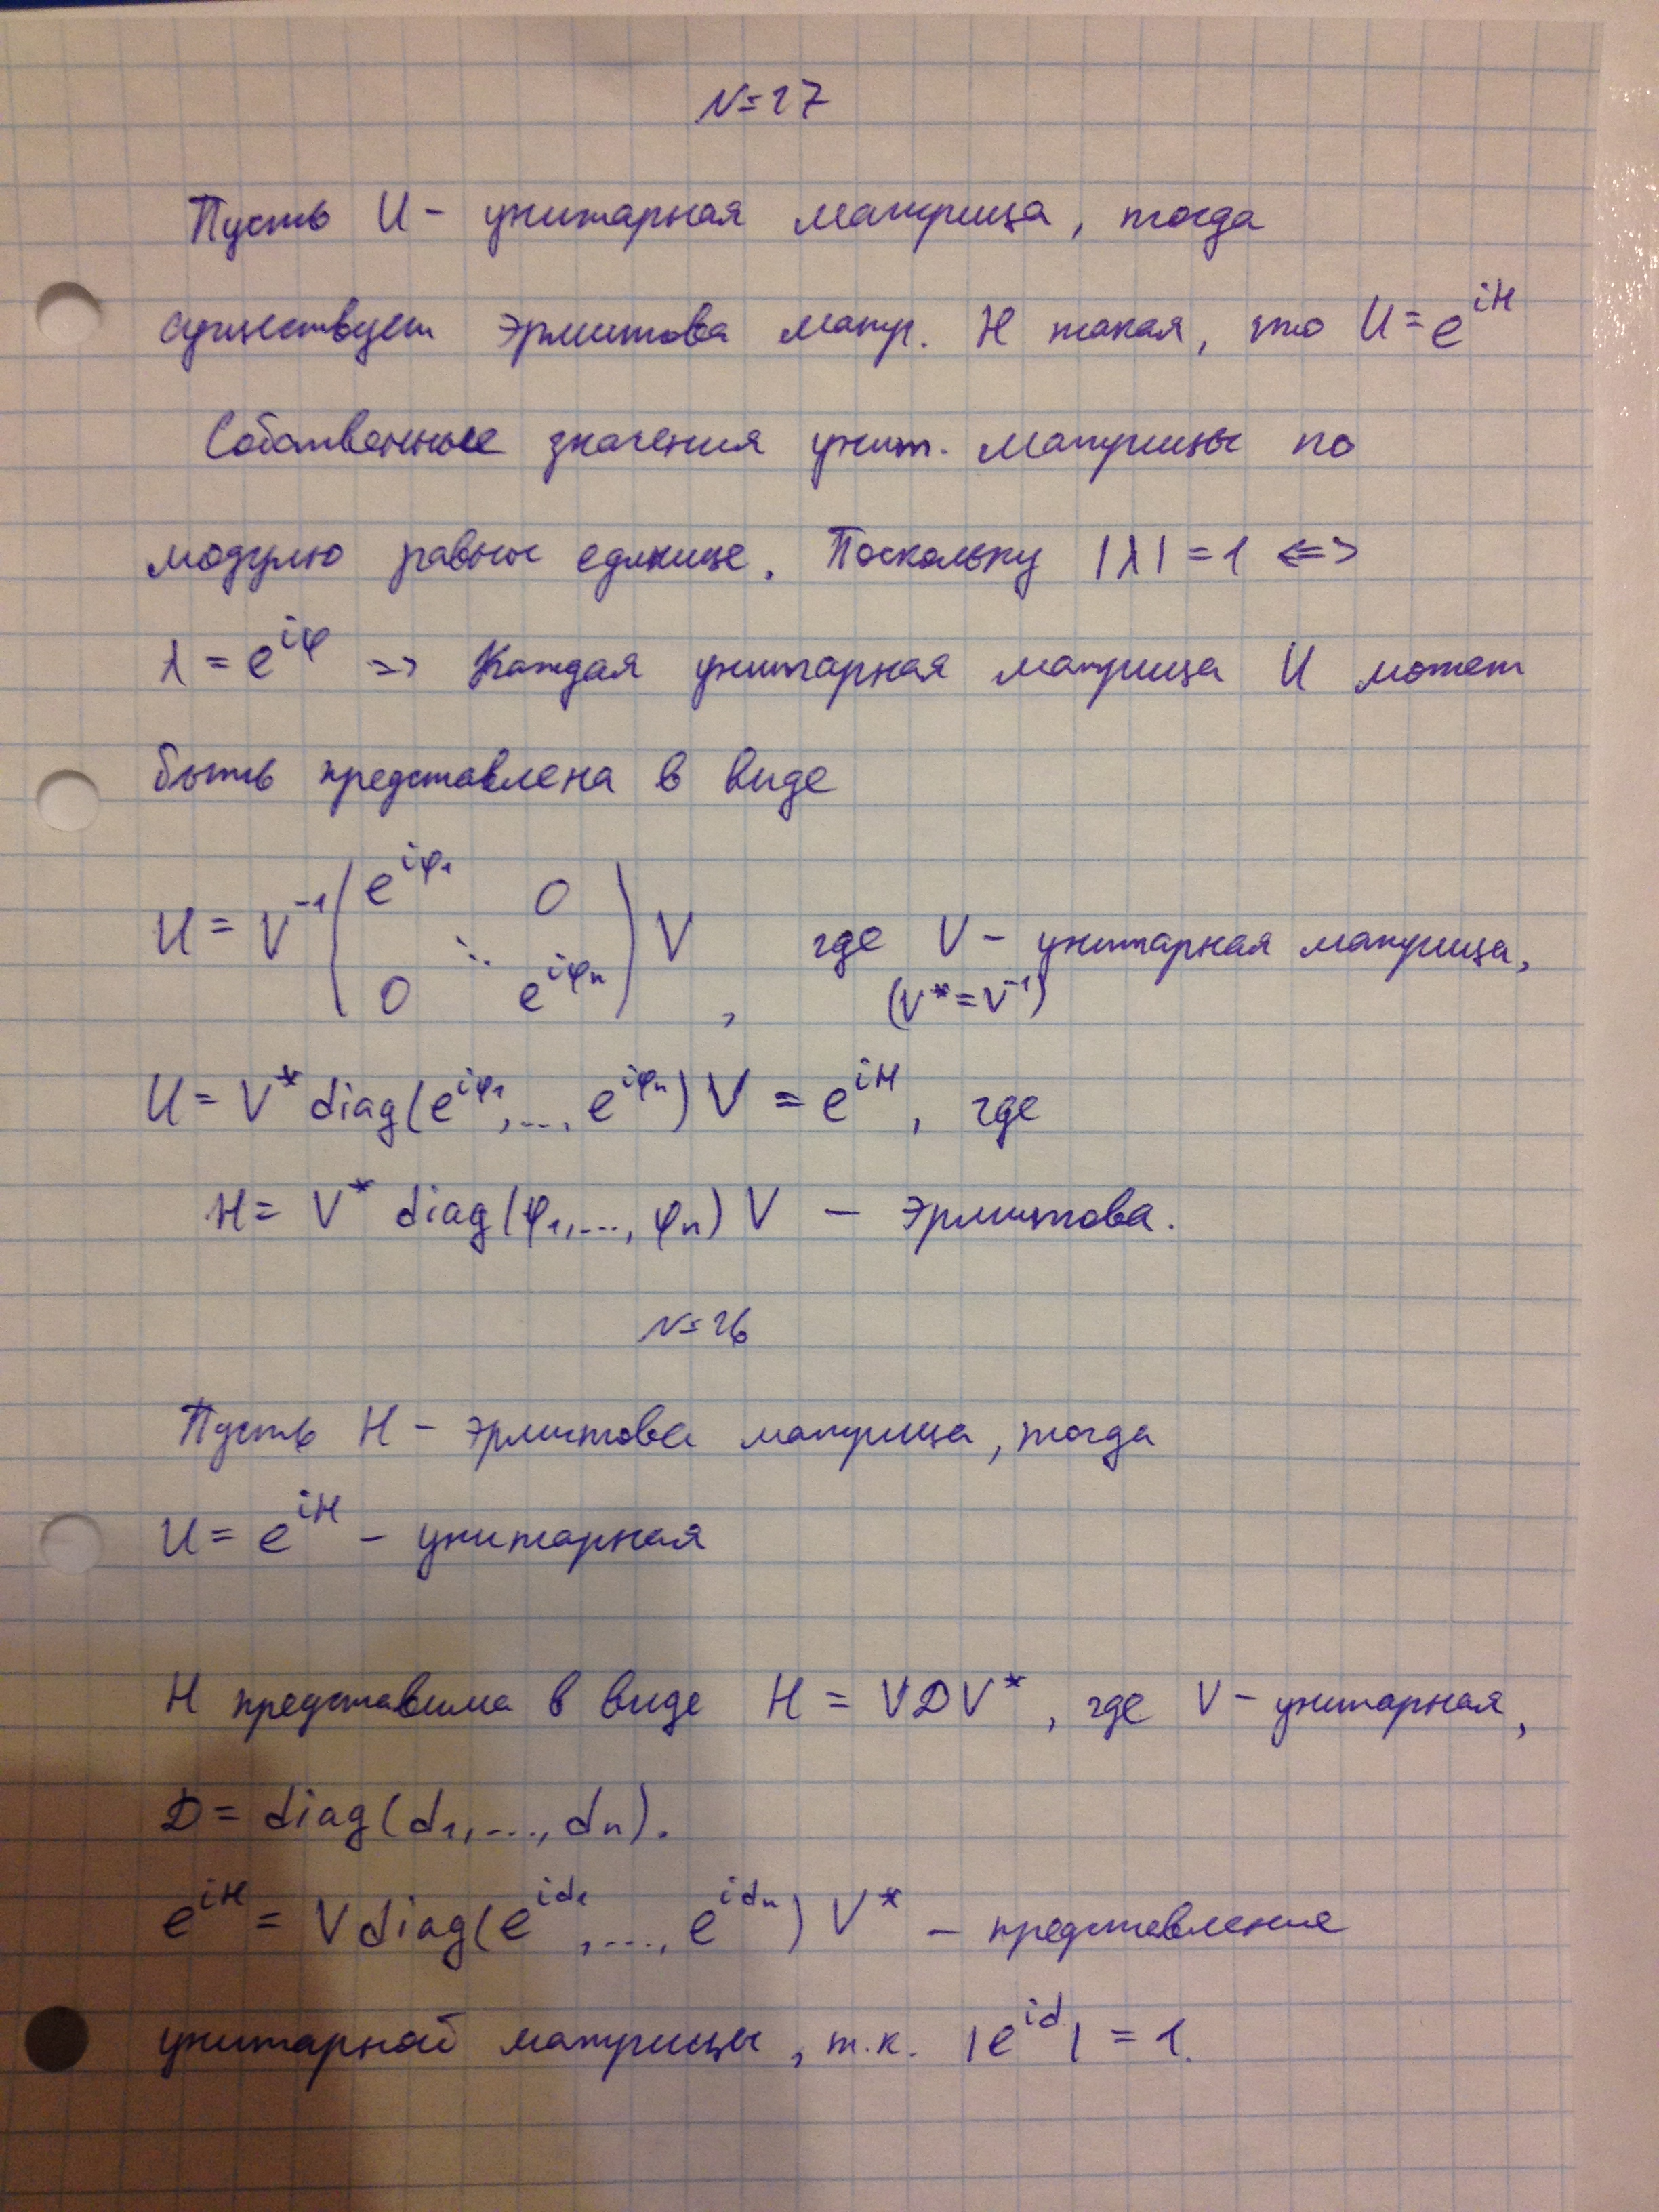 N=27
Пусть U - унитарная матрица, тогда
существует эрмитова матр. H такая, что U = e^{iH}
Собственные значения унит. матрицы по
модулю равны единице. Поскольку |λ| = 1 <=>
λ = e^{iφ} => Каждая унитарная матрица U может
быть представлена в виде
U = V^{-1} ( e^{iφ₁} 0 ⋱ 0 e^{iφₙ} ) V , где V - унитарная матрица,
(V* = V^{-1})
U = V* diag(e^{iφ₁}, ..., e^{iφₙ}) V = e^{iH}, где
H = V* diag(φ₁, ..., φₙ) V - эрмитова.
N=26
Пусть H - эрмитова матрица, тогда
U = e^{iH} - унитарная
H представима в виде H = VDV*, где V - унитарная,
D = diag(d₁, ..., dₙ).
e^{iH} = V diag(e^{id₁}, ..., e^{idₙ}) V* - представление
унитарной матрицы, т.к. |e^{id}| = 1.